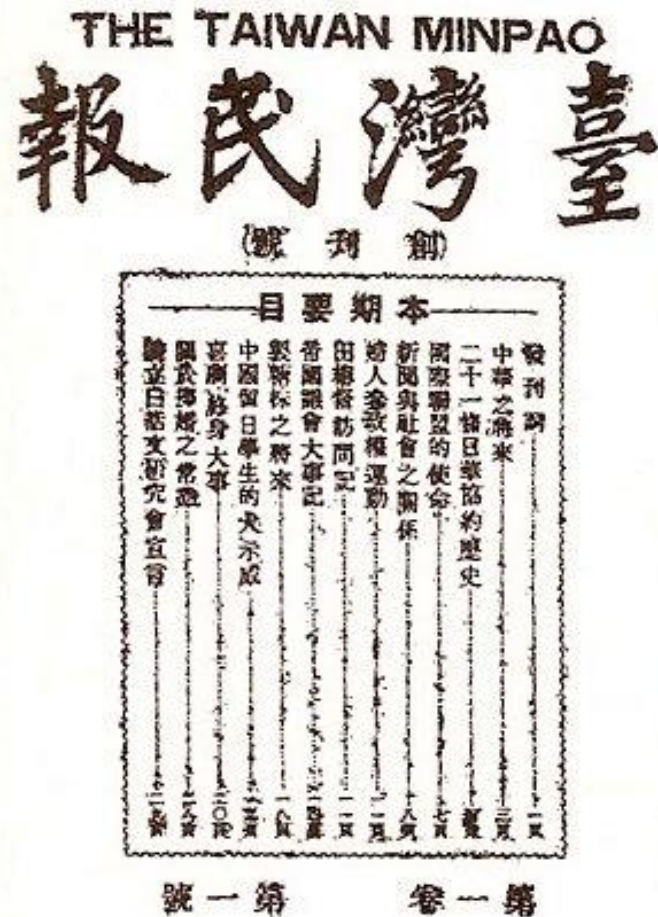 THE TAIWAN MINPAO
臺灣民報
(創刊號)
本期要目
發刊詞 一頁
中華之將來 二頁
二十一條日華協約歷史
國際聯盟的使命 七頁
新聞與社會之關係 八頁
婦人參政權運動 一一頁
田總督訪問記 一二頁
帝國議會大事記 一四頁
製糖界之將來 一八頁
中國留日學生的大示威
喜劇終身大事 二〇頁
關於婚姻之常識 二八頁
白話文研究會宣言 二九頁
第一卷 第一號